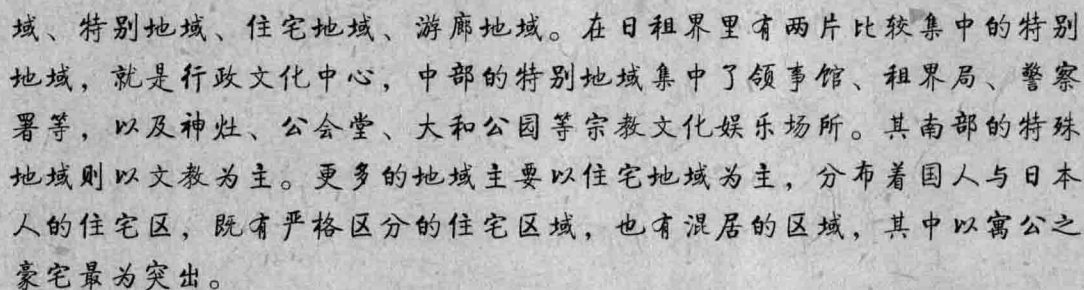 域、特别地域、住宅地域、游廊地域。在日租界里有两片比较集中的特别
地域，就是行政文化中心，中部的特别地域集中了领事馆、租界局、警察
署等，以及神灶、公会堂、大和公园等宗教文化娱乐场所。其南部的特殊
地域则以文教为主。更多的地域主要以住宅地域为主，分布着国人与日本
人的住宅区，既有严格区分的住宅区域，也有混居的区域，其中以寓公之
豪宅最为突出。